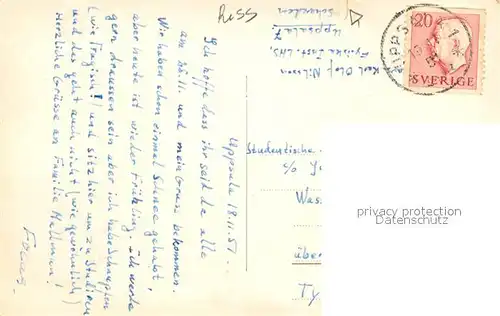 Uppsala 18.11.51.
Ich hoffe dass ihr seid da alle
am hölli und mein Gruss bekommen.
Wir haben schon einmal Schnee gehabt,
aber heute ist wieder Frühling. Ich werde
gern draussen sein aber ich habe Schnupfen
(wie Tragisch!) und sitz hier um zu Studieren
und das geht auch nicht (wie gewöhnlich)
Herzliche Grüsse an Familie
RuSS
Karl Olof Nilsson
Fysiska Inst. LHS.
Uppsala 7
Schweden
20
SVERIGE
UPPSALA
Studentische
c/o
Was
über
Ty
privacy protection
Datenschutz